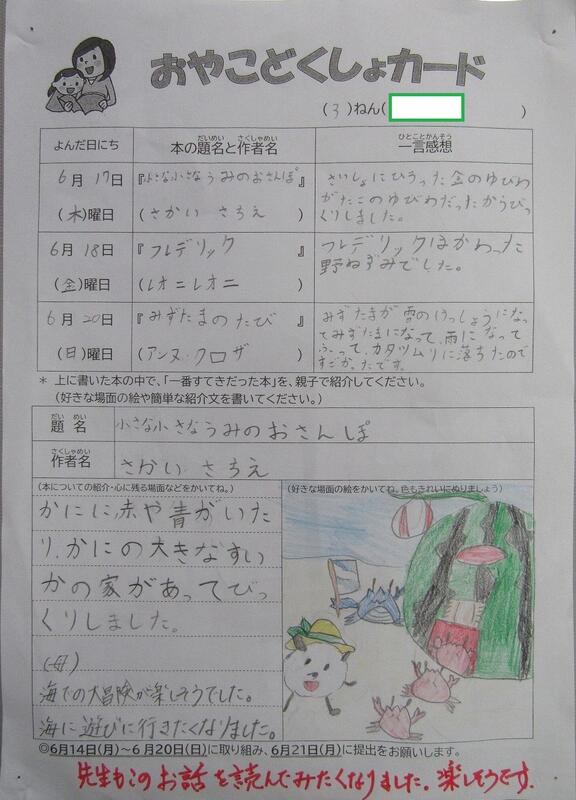 おやこどくしょカード
(3)ねん( )
よんだ日にち 本の題名と作者名 一言感想
6月17日
(木)曜日
『小さな小さなうみのおさんぽ』
(さかい さちえ)
さいしょにひろった金のゆびわ
がたこのゆびわだったからびっ
くりしました。
6月18日
(金)曜日
『フレデリック』
(レオニレオニ)
フレデリックはかわった
野ねずみでした。
6月20日
(日)曜日
『みずたまのたび』
(アンヌ・クロザ)
みずたまが雲のけっしょうになっ
てみずたまになって、雨になって
ふって、カタツムリに落ちたので
すごかったです。
* 上に書いた本の中で、「一番すてきだった本」を、親子で紹介してください。
(好きな場面の絵や簡単な紹介文を書いてください。)
題名 小さな小さなうみのおさんぽ
作者名 さかい さちえ
(本についての紹介・心に残る場面などをかいてね。)
かにに、赤や青がいた
り、かにの大きなすい
かの家があってびっ
くりしました。
(母)
海での大冒険が楽しそうでした。
海に遊びに行きたくなりました。
(好きな場面の絵をかいてね。色もきれいにぬりましょう)
◎6月14日(月)～6月20日(日)に取り組み、6月21日(月)に提出をお願いします。
先生もこのお話を読んでみたくなりました。楽しそうです。